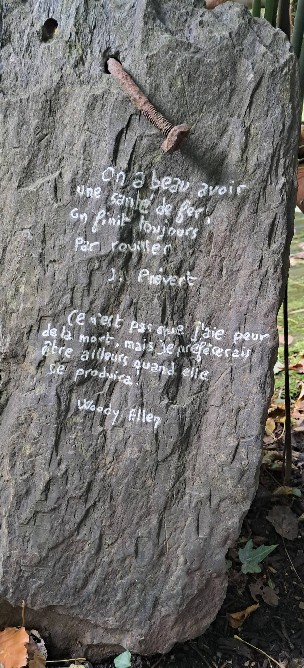 On a beau avoir
une santé de fer,
on finit toujours
par rouiller
J. Prévert
Ce n'est pas que j'aie peur
de la mort, mais je préfèrerais
être ailleurs quand elle
se produira.
Woody Allen